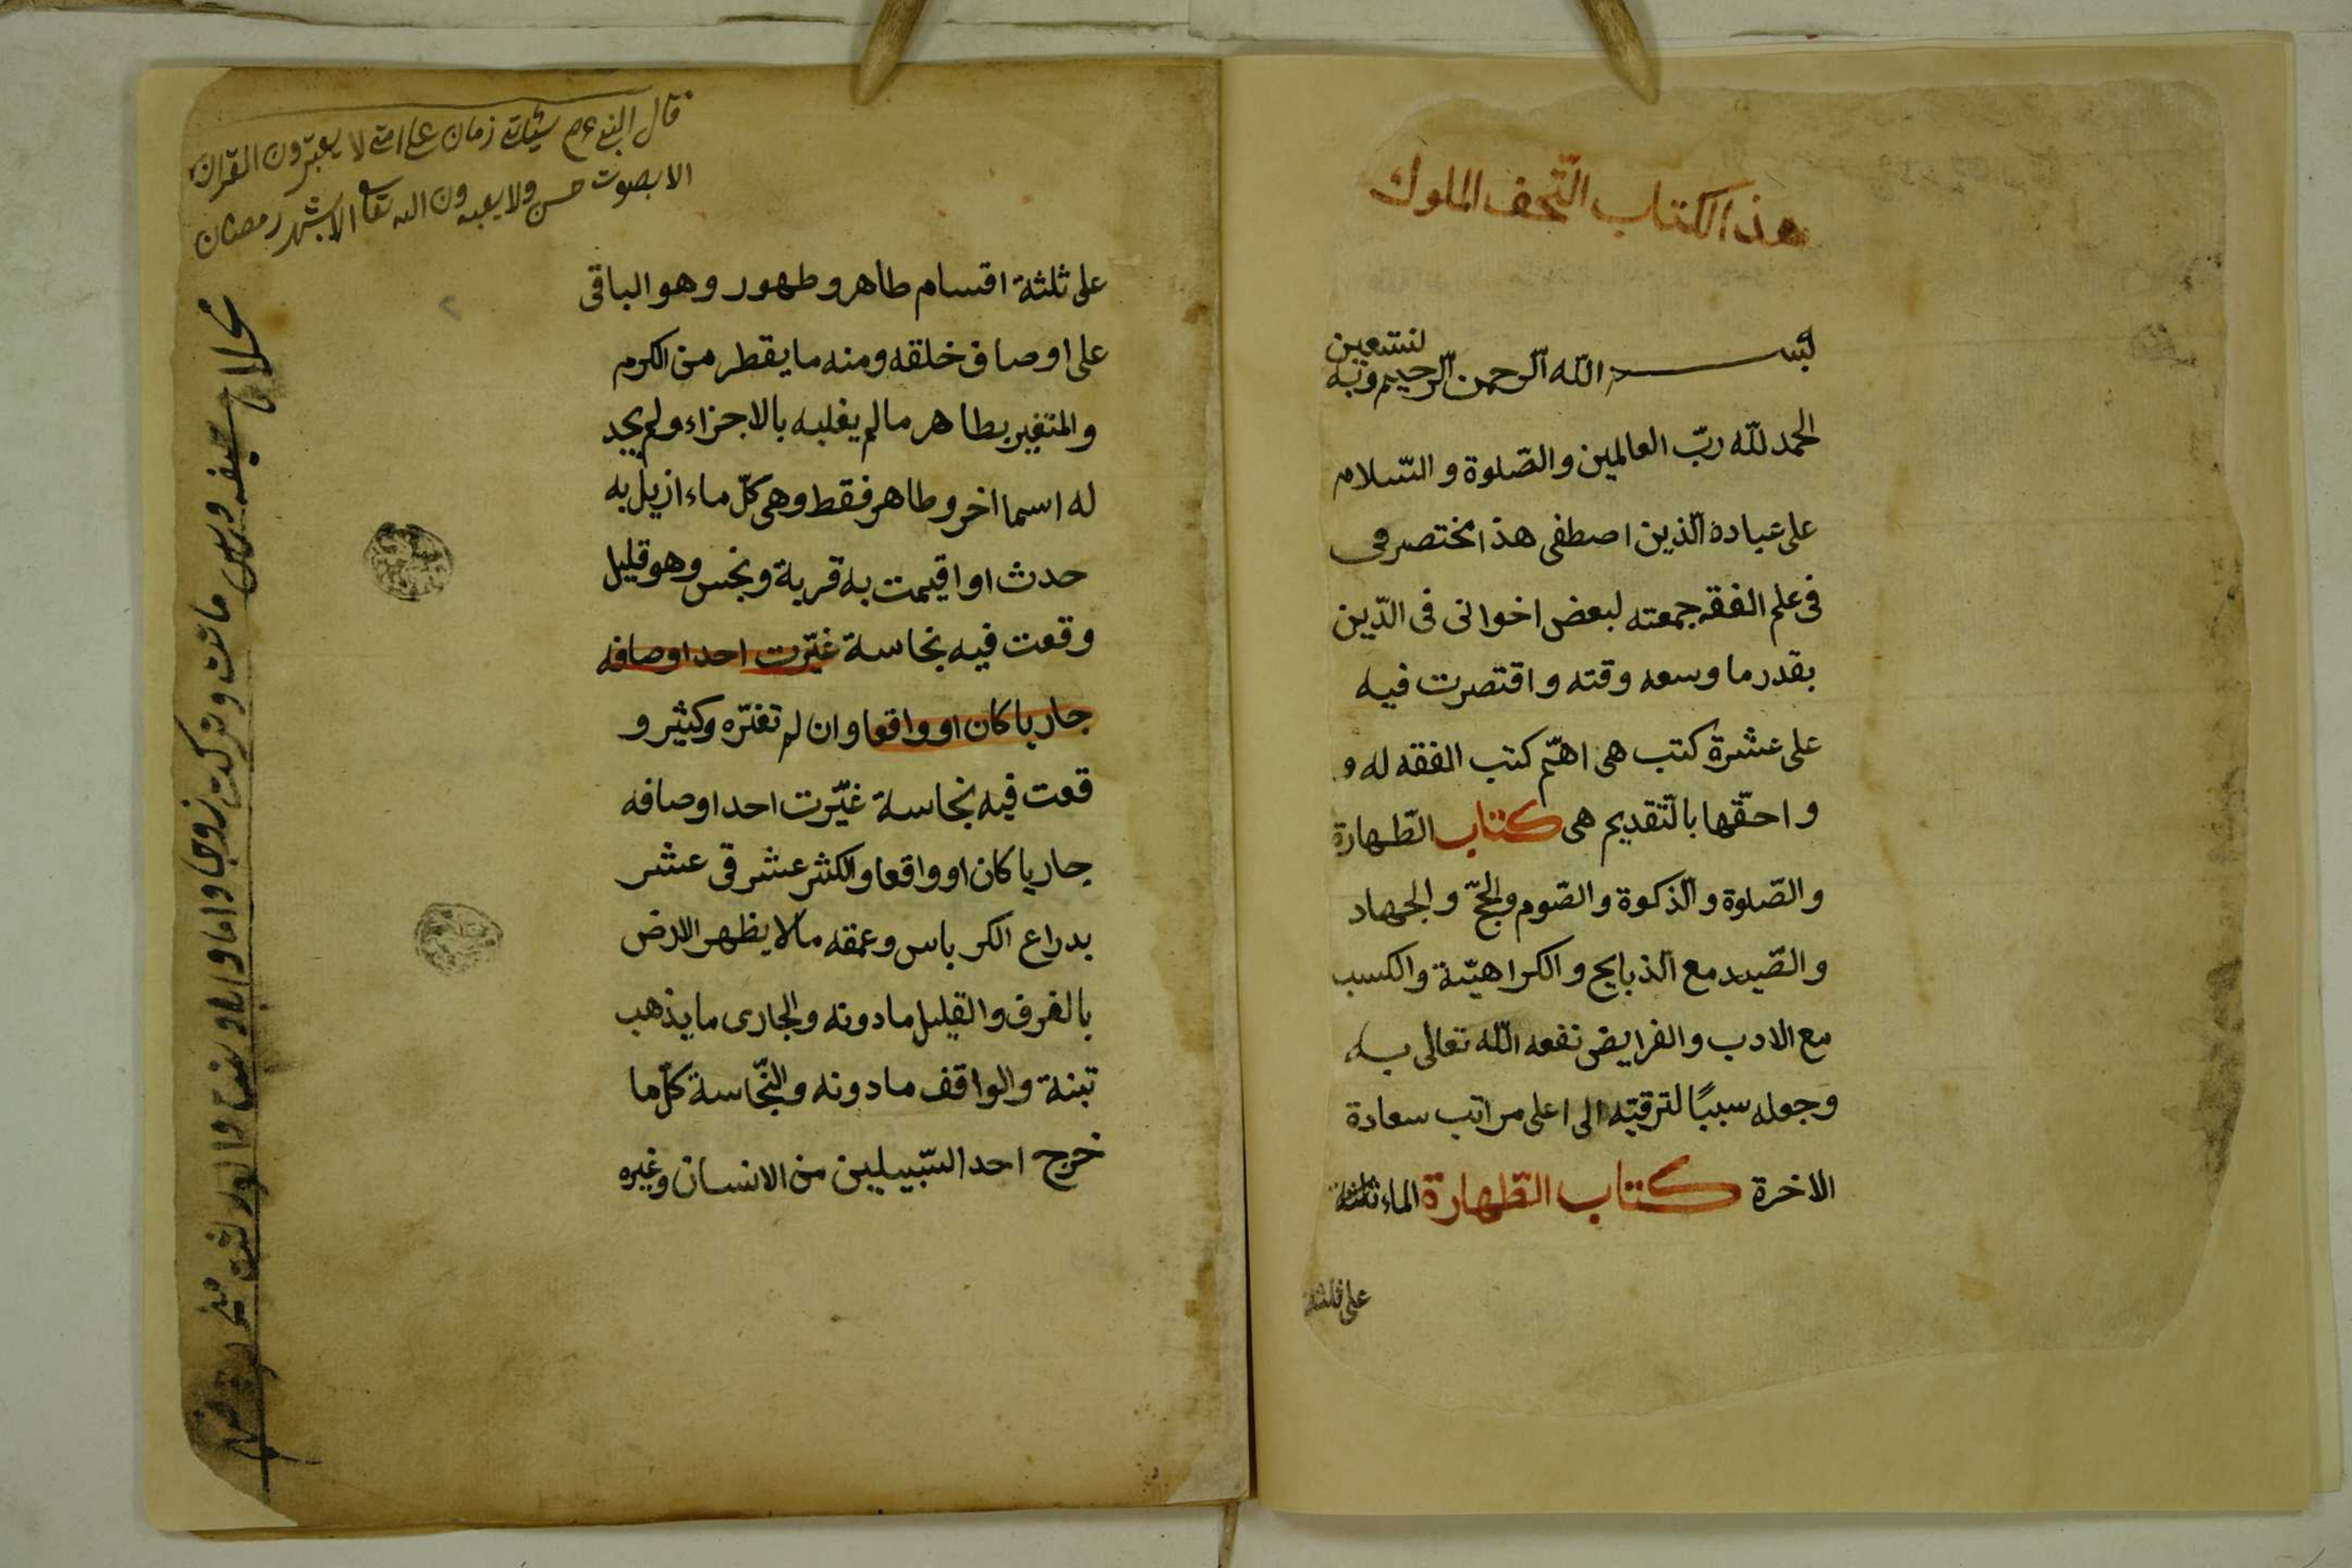 هذا الكتاب التحف الملوك
بسم الله الرحمن الرحيم وبه نستعين
الحمد لله ربّ العالمين والصّلوة والسّلام
على عباده الّذين اصطفى هذا مختصر فى
فى علم الفقه جمعته لبعض اخوانى فى الدّين
بقدر ما وسعه وقته واقتصرت فيه
على عشرة كتب هى اهمّ كتب الفقه له و
و احقّها بالتّقديم هى كتاب الطّهارة
والصّلوة والذكوة والصّوم والحجّ والجهاد
والصّيد مع الذبايح والكراهيّة والكسب
مع الادب والفرايض نفعه اللّه تعالى به
وجعله سببًا لترقيّه الى اعلى مراتب سعادة
الاخرة كتاب الطّهارة الماء ثلثة
على ثلثة
قال النبى عم سيأتى زمان على امتى لا يعبّرون القران
الا بصوت حسن ولا يعبدون الله تعالى الا بشهر رمضان
على ثلثة اقسام طاهر و طهور وهو الباقى
على اوصاف خلقه ومنه ما يقطر من الكرم
والمتغير بطاهر ما لم يغلبه بالاجزاء ولم يجد
له اسما اخر وطاهر فقط وهى كلّ ماء ازيل به
حدث او اقيمت به قربة ونجس وهو قليل
وقعت فيه نجاسة غيّرت احد اوصافه
جاريا كان او واقعا وان لم تغيّره وكثير و
قعت فيه نجاسة غيّرت احد اوصافه
جاريا كان او واقعا والكثر عشر فى عشر
بدراع الكرباس وعمقه ما لا يظهر الارض
بالغرف والقليل ما دونه والجارى ما يذهب
تبنة والواقف ما دونه والنّجاسة كلّ ما
خرج احد السّبيلين من الانسان وغيره
ماتت وتركت زوجا واما وابا و